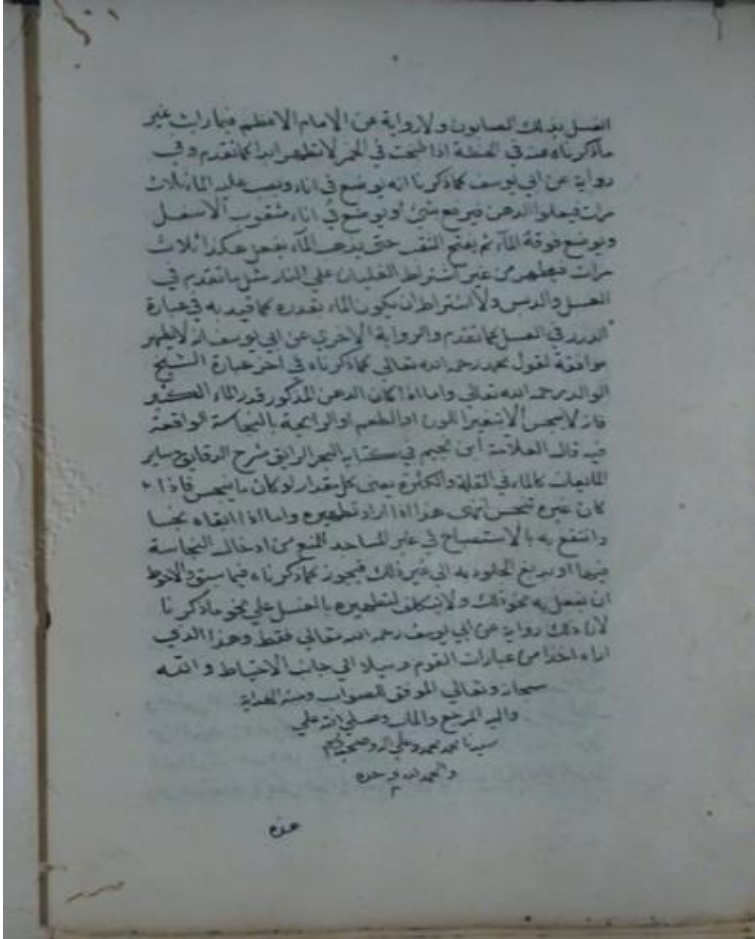 الغسل بذلك الصابون ولا رواية عن الامام الاعظم فيما رايت غير
ما ذكرناه عنه في الحنطة اذا طبخت في الخمر لا تطهر ابدا كما تقدم وفي
رواية عن ابي يوسف كما ذكرنا انه يوضع في اناء ويصب عليه الماء ثلاث
مرات فيعلو الدهن فيرفع بشئ او يوضع في اناء مثقوب الاسفل
ويوضع فوقه الماء ثم يفتح الثقب حتى يذهب الماء يفعل هكذا ثلاث
مرات فيطهر من غير اشتراط الغليان على النار مثل ما تقدم في
العسل والدبس ولا اشتراط ان يكون الماء بقدره كما قيد به في عبارة
الدرر في العسل كما تقدم والرواية الاخرى عن ابي يوسف انه لا يطهر
موافقة لقول محمد رحمه الله تعالى كما ذكرناه في اخر عبارة الشيخ
الوالد رحمه الله تعالى واما اذا كان الدهن المذكور قدر الماء الكثير
فانه لا ينجس الا بتغير اللون او الطعم او الرايحة بالنجاسة الواقعة
فيه قال العلامة ابن نجيم في كتابه البحر الرايق شرح الدقايق وساير
المايعات كالماء في القلة والكثرة يعنى كل مقدار لو كان ما ينجس فاذا
كان غيره تنجس انتهى هذا اذا اراد تطهيره واما اذا ابقاه نجسا
وانتفع به بالاستصباح في غير المساجد للمنع من ادخال النجاسة
فيها او بدبغ الجلود به الى غير ذلك فيجوز كما ذكرناه فيما سبق والاحوط
ان يفعل به نحو ذلك ولا يتكلف لتطهيره بالغسل على نحو ما ذكرنا
لان ذلك رواية عن ابي يوسف رحمه الله تعالى فقط وهذا الذي
اراه اخذا من عبارات القوم وميلا الى جانب الاحتياط والله
سبحانه وتعالى الموفق للصواب ومنه الهداية
واليه المرجع والماب وصلى الله على
سيدنا محمد وعلى اله وصحبه وسلم
والحمد لله وحده